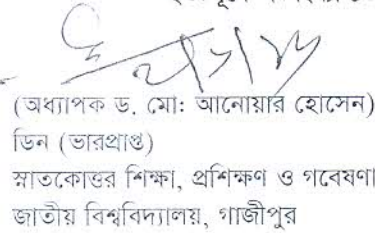 (অধ্যাপক ড. মো: আনোয়ার হোসেন)
ডিন (ভারপ্রাপ্ত)
স্নাতকোত্তর শিক্ষা, প্রশিক্ষণ ও গবেষণা
জাতীয় বিশ্ববিদ্যালয়, গাজীপুর